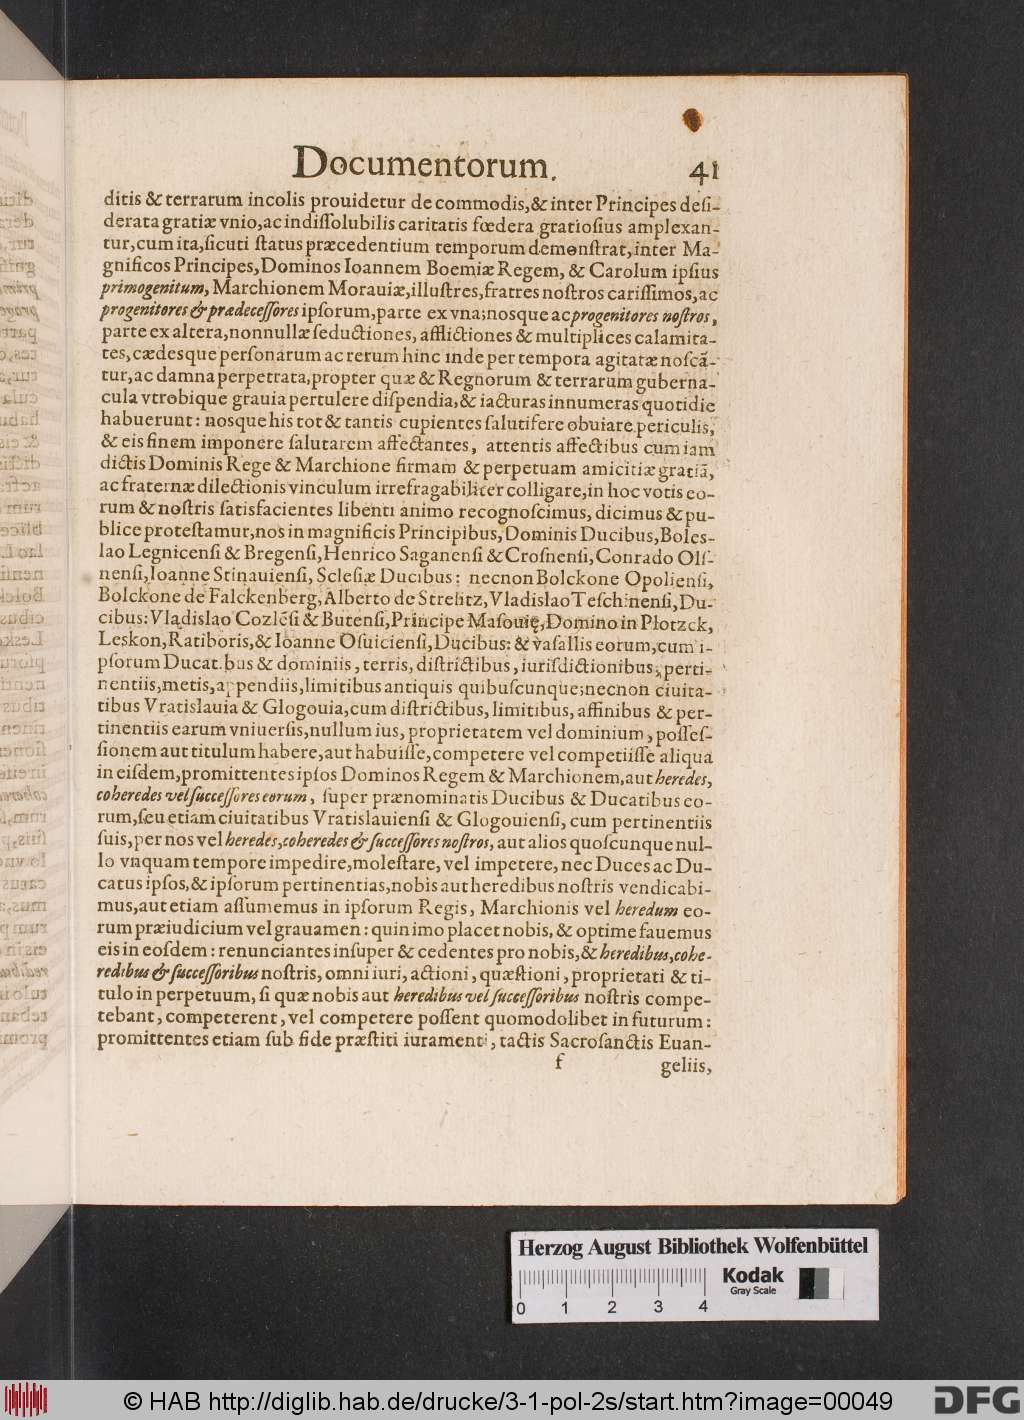 Documentorum. 41
ditis & terrarum incolis prouidetur de commodis, & inter Principes deſi-
derata gratiæ vnio, ac indiſſolubilis caritatis fœdera gratioſius amplexan-
tur, cum ita, ſicuti ſtatus præcedentium temporum demonſtrat, inter Ma-
gnificos Principes, Dominos Ioannem Boemiæ Regem, & Carolum ipſius
primogenitum, Marchionem Morauiæ, illuſtres, fratres noſtros cariſſimos, ac
progenitores & prædeceſſores ipſorum, parte ex vna; nosque ac progenitores noſtros,
parte ex altera, nonnullæ ſeductiones, afflictiones & multiplices calamita-
tes, cædesque perſonarum ac rerum hinc inde per tempora agitatæ noſcã-
tur, ac damna perpetrata, propter quæ & Regnorum & terrarum guberna-
cula vtrobique grauia pertulere diſpendia, & iacturas innumeras quotidie
habuerunt: nosque his tot & tantis cupientes ſalutifere obuiare periculis,
& eis finem imponere ſalutarem affectantes, attentis affectibus cum iam
dictis Dominis Rege & Marchione firmam & perpetuam amicitiæ gratiã,
ac fraternæ dilectionis vinculum irrefragabiliter colligare, in hoc votis eo-
rum & noſtris ſatisfacientes libenti animo recognoſcimus, dicimus & pu-
blice proteſtamur, nos in magnificis Principibus, Dominis Ducibus, Boles-
lao Legnicenſi & Bregenſi, Henrico Saganenſi & Croſnenſi, Conrado Olſ-
nenſi, Ioanne Stinauienſi, Scleſiæ Ducibus: necnon Bolckone Opolienſi,
Bolckone de Falckenberg, Alberto de Strelitz, Vladislao Teſchinenſi, Du-
cibus: Vladislao Cozlẽſi & Butenſi, Principe Maſouię, Domino in Plotzck,
Leskon, Ratiboris, & Ioanne Oſuicienſi, Ducibus: & vaſallis eorum, cum i-
pſorum Ducat bus & dominiis, terris, diſtrictibus, iuriſdictionibus, perti-
nentiis, metis, appendiis, limitibus antiquis quibuſcunque; necnon ciuita-
tibus Vratislauia & Glogouia, cum diſtrictibus, limitibus, affinibus & per-
tinentiis earum vniuerſis, nullum ius, proprietatem vel dominium, poſſeſ-
ſionem aut titulum habere, aut habuiſſe, competere vel competiiſſe aliqua
in eiſdem, promittentes ipſos Dominos Regem & Marchionem, aut heredes,
coheredes vel ſucceſſores eorum, ſuper prænominatis Ducibus & Ducatibus eo-
rum, ſeu etiam ciuitatibus Vratislauienſi & Glogouienſi, cum pertinentiis
ſuis, per nos vel heredes, coheredes & ſucceſſores noſtros, aut alios quoſcunque nul-
lo vnquam tempore impedire, moleſtare, vel impetere, nec Duces ac Du-
catus ipſos, & ipſorum pertinentias, nobis aut heredibus noſtris vendicabi-
mus, aut etiam aſſumemus in ipſorum Regis, Marchionis vel heredum eo-
rum præiudicium vel grauamen: quin imo placet nobis, & optime fauemus
eis in eoſdem: renunciantes inſuper & cedentes pro nobis, & heredibus, cohe-
redibus & ſucceſſoribus noſtris, omni iuri, actioni, quæſtioni, proprietati & ti-
tulo in perpetuum, ſi quæ nobis aut heredibus vel ſucceſſoribus noſtris compe-
tebant, competerent, vel competere poſſent quomodolibet in futurum:
promittentes etiam ſub fide præſtiti iuramenti, tactis Sacroſanctis Euan-
f geliis,
Herzog August Bibliothek Wolfenbüttel
Kodak
Gray Scale
0 1 2 3 4
© HAB http://diglib.hab.de/drucke/3-1-pol-2s/start.htm?image=00049
DFG